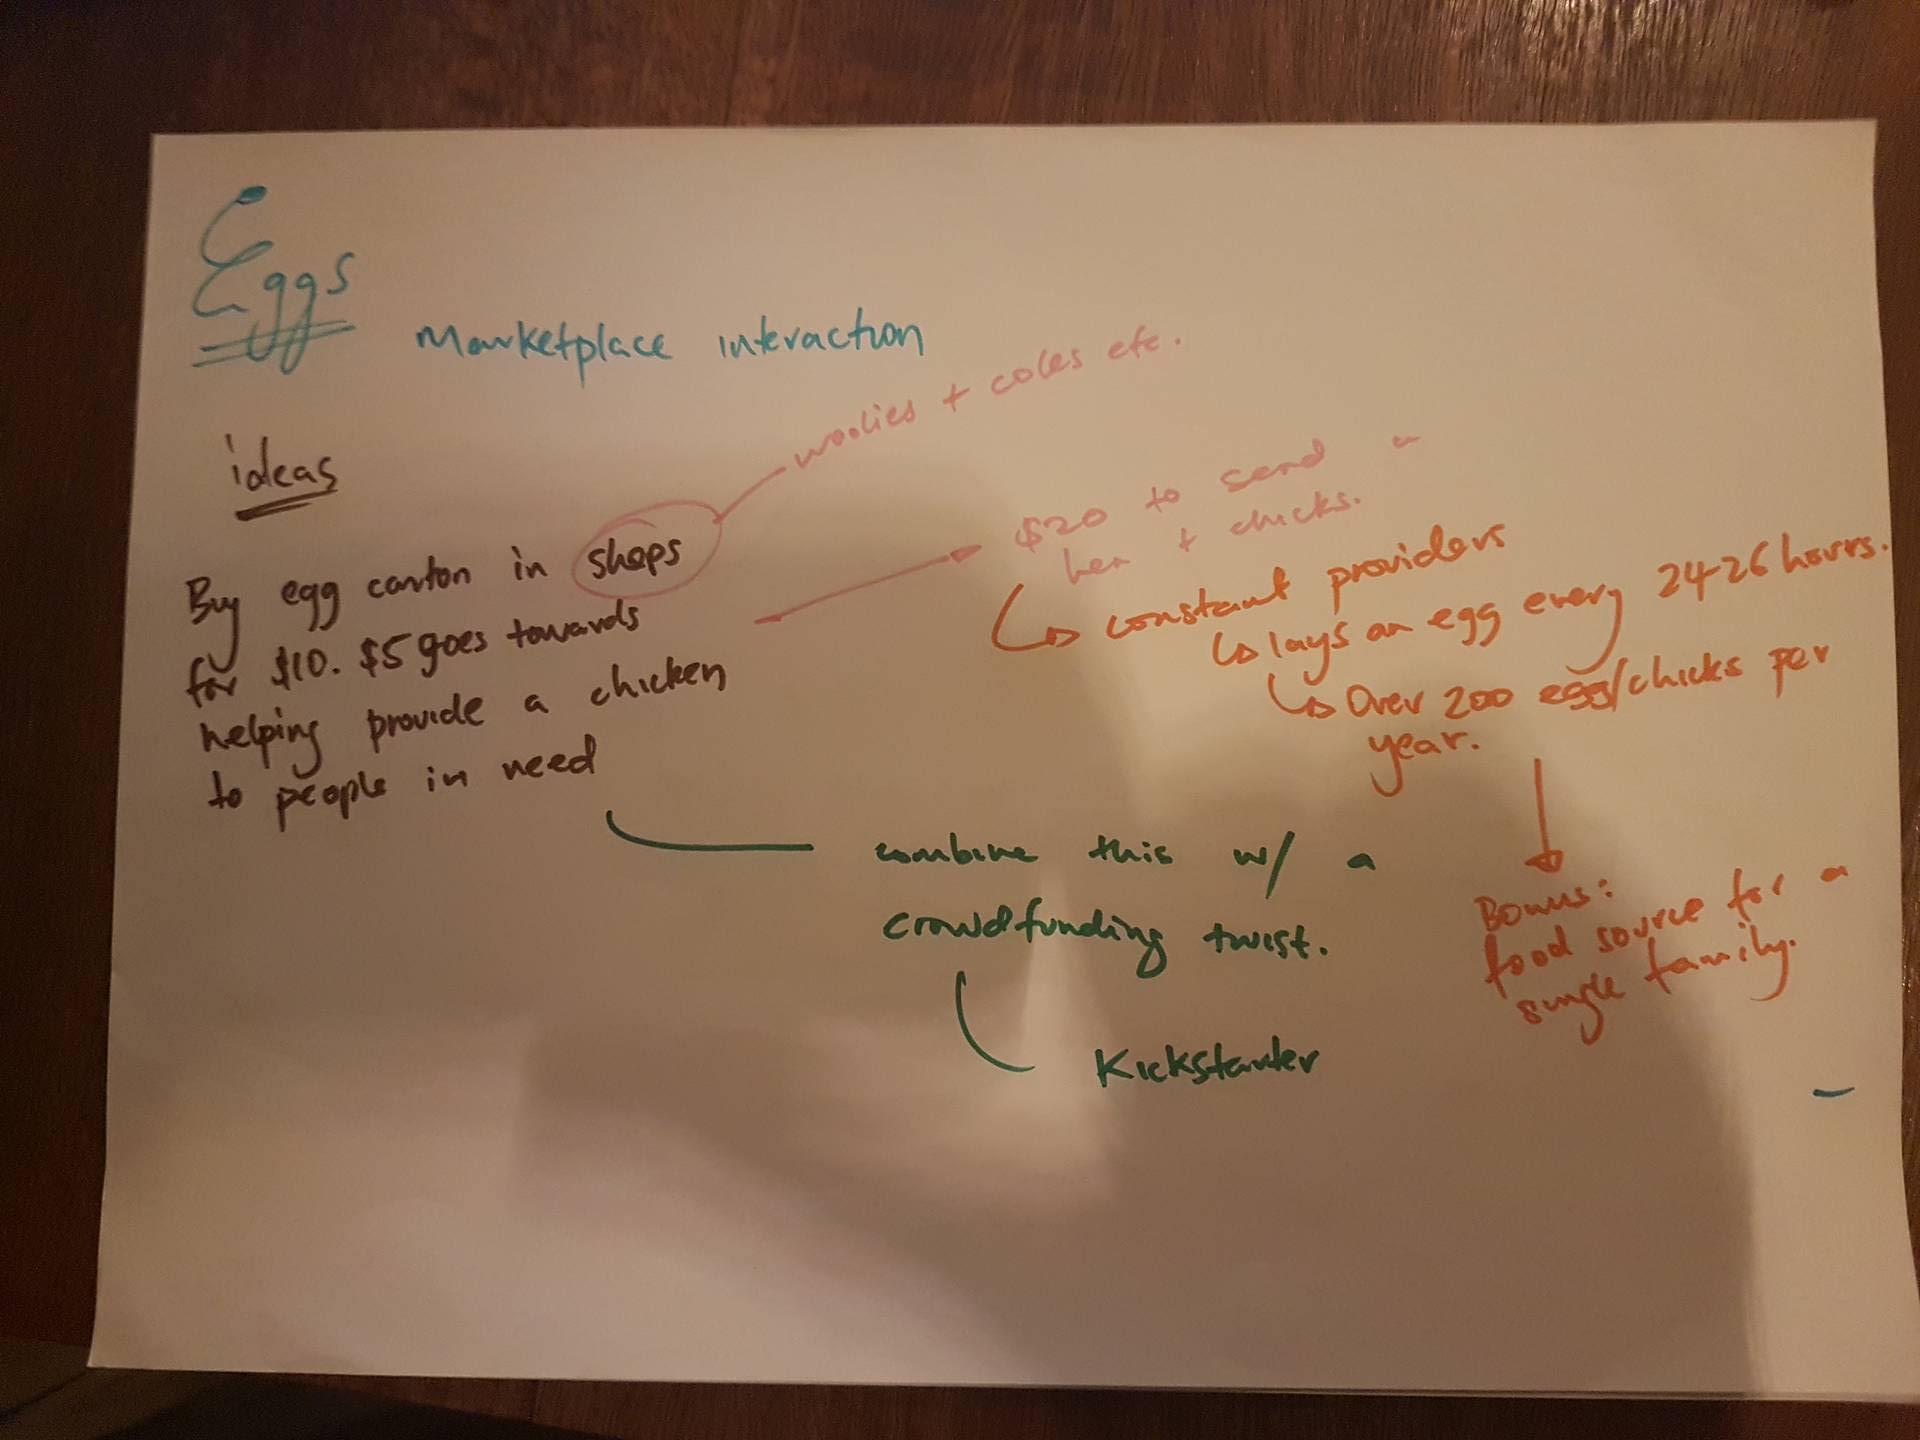 Eggs
Marketplace interaction
woolies + coles etc.
ideas
Buy egg carton in shops
for $10. $5 goes towards
helping provide a chicken
to people in need
$20 to send a
hen + chicks.
constant providers
lays an egg every 24-26 hours.
Over 200 egg/chicks per
year.
Bonus:
food source for a
single family.
combine this w/ a
crowdfunding twist.
Kickstarter